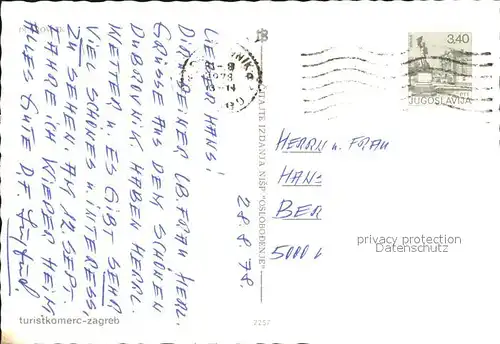 LIEBER HANS!
DIR u. DEINER LB. FRAU, HERL.
GRÜSSE AUS DEM SCHÖNEN
DUBROVNIK. HABEN HERRL.
WETTER, u. ES GIBT SEHR
VIEL SCHÖNES u. INTERESS.
ZU SEHEN. AM 12. SEPT.
FAHRE ICH WIEDER HEIM.
ALLES GUTE D. F.
28. 8. 78.
ČITAJTE IZDANJA NIŠP "OSLOBOĐENJE"
3,40
JUGOSLAVIJA
HERRN u. FRAU
HANS
BER
5000
privacy protection
Datenschutz
turistkomerc-zagreb
2257